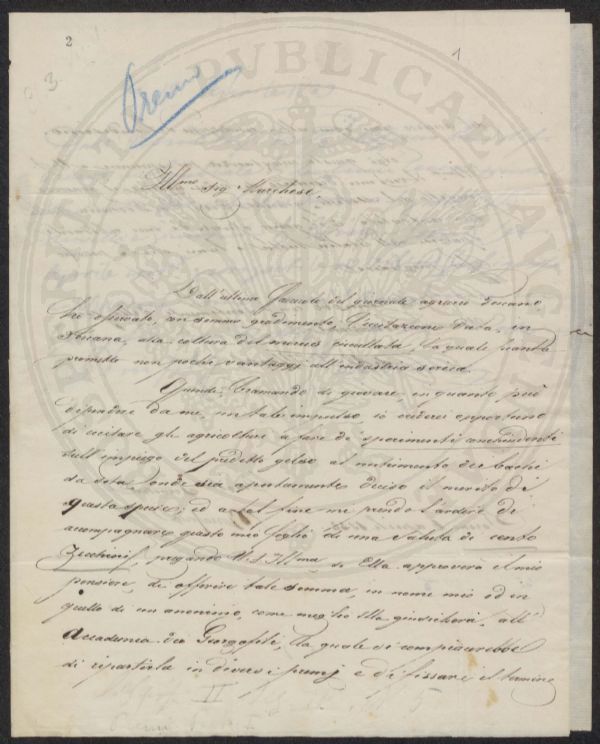 2
1
3
Premio
Ill.mo Sig. Marchese.
Dall'ultimo Giornale del giornale agrario Toscano
ho rilevato, con sommo gradimento, l'eccitazione data, in
Toscana, alla coltura del morus cucullata, la quale pianta
promette non pochi vantaggi all'industria serica.
Quindi, bramando di giovare, in quanto può
dipendere da me, un tale impulso io crederei opportuno
di eccitare gli agricoltori a fare di sperimenti concludenti
sull'impiego del predetto gelso al nutrimento dei bachi
da seta, onde sia apertamente deciso il merito di
questa specie; ed a tal fine mi prendo l'ardire di
accompagnare questo mio foglio di una valuta di cento
Zecchini, pregando V.S. Ill.ma, se Ella approverà il mio
pensiere, di offrire tale somma, in nome mio od in
quello di un anonimo, come meglio Ella giudicherà, all'
Accademia dei Georgofili, la quale si compiacerebbe
di ripartirla in diversi premj e di fissare il termine
II